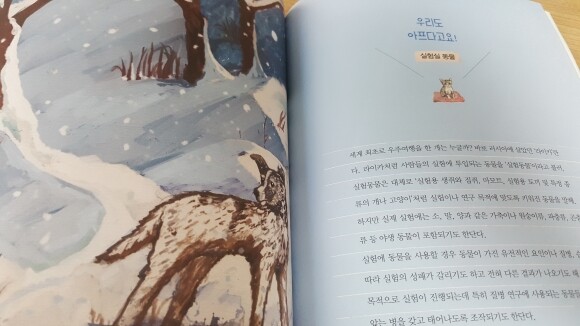 우리도
아프다고요!
실험실 동물
세계 최초로 우주여행을 한 개는 누굴까? 바로 러시아에 살았던 '라이카'란
다. 라이카처럼 사람들의 실험에 투입되는 동물을 '실험동물'이라고 불러.
실험동물은 대체로 '실험용 생쥐와 집쥐, 마모트, 실험용 토끼 및 특정 종
류의 개나 고양이'처럼 실험이나 연구 목적에 맞도록 키워진 동물을 말해.
하지만 실제 실험에는 소, 말, 양과 같은 가축이나 원숭이류, 파충류,
류 등 야생 동물이 포함되기도 한단다.
실험에 동물을 사용할 경우 동물이 가진 유전적인 요인이나 질병,
따라 실험의 성패가 갈리기도 하고 전혀 다른 결과가 나오기도 해
목적으로 실험이 진행되는데 특히 질병 연구에 사용되는 동물들
있는 병을 갖고 태어나도록 조작되기도 한단다.